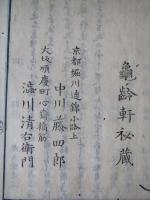 亀齢軒秘蔵
京都堀川通錦小路上
中川藤四郎
大坂順慶町心斎橋筋
澁川清右衛門